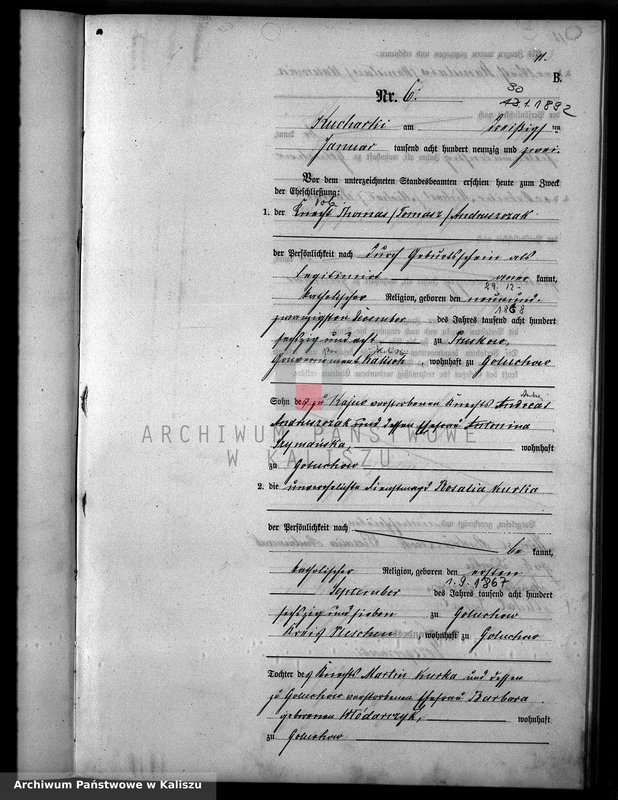 11.
B.
Nr. 6.
30
13.1.1892
Kucharki am dreißigsten
Januar tausend acht hundert neunzig und zwei
Vor dem unterzeichneten Standesbeamten erschien heute zum Zweck
der Eheschließung:
1. der Knecht Thomas /Tomasz/ Andruszczak
der Persönlichkeit nach durch Geburtsschein als
legitimirt aner kannt,
29. 12.
katholischer Religion, geboren den neunund-
1868
zwanzigsten Dezember des Jahres tausend acht hundert
sechszig und acht zu
Gouvernement Kalisch, wohnhaft zu Goluchow
Sohn des zu verstorbenen Knechts Andreas
Andruszczak und dessen Ehefrau Antonina
Szymańska, wohnhaft
zu Goluchow
2. die unverehelichte Dienstmagd Rosalia Kurka
der Persönlichkeit nach
be kannt,
katholischer Religion, geboren den ersten
1.9.1867
September des Jahres tausend acht hundert
sechszig und sieben zu Goluchow
Kreis Pleschen, wohnhaft zu Goluchow
Tochter des Knechts Martin Kurka und dessen
zu Goluchow verstorbenen Ehefrau Barbara
geborenen Włodarczyk, wohnhaft
zu Goluchow
ARCHIWUM PAŃSTWOWE
W KALISZU
Archiwum Państwowe w Kaliszu